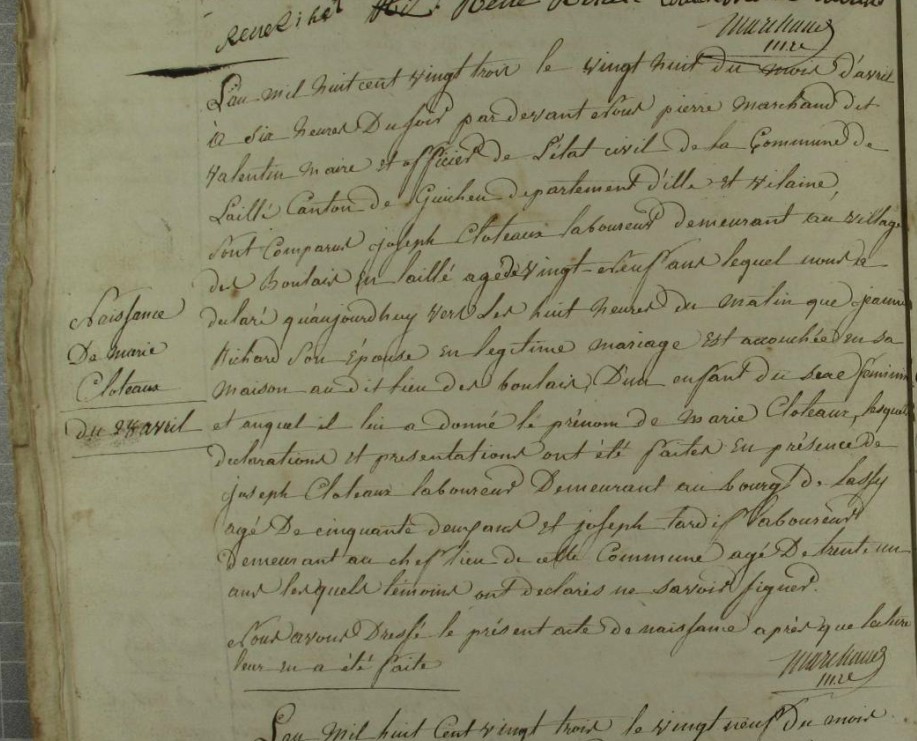 René
Marchand
mre
L'an mil huit cent vingt trois le vingt huit du mois d'avril
à six heures du soir par devant Nous pierre Marchand dit
Valentin maire et officier de l'état civil de la Commune de
Laillé Canton de Guichen departement d'ille et vilaine,
sont Comparus joseph Cloteaux laboureur demeurant au village
des Boulais en laillé agé de vingt neuf ans lequel nous a
declaré qu'aujourdhuy vers les huit heures du matin que jeanne
Richard son Épouse en legitime mariage est accouchée en sa
maison au dit lieu des boulais, D'un enfant du sexe feminin
et auquel il lui a donné le prénom de Marie Cloteaux, lesquel
declarations et presentations ont été faites en présence de
joseph Cloteaux laboureur Demeurant au bourg de Lassy
agé De cinquante deux ans et joseph tardif laboureur
Demeurant au chef lieu de cette Commune agé De trente un
ans lesquels témoins ont declarés ne savoir signer.
Nous avons Dressé le présent acte de naissance après que lecture
leur en a été faite
Marchand
mre
Naissance
De Marie
Cloteaux
du 28 avril
L'an Mil huit Cent vingt trois le vingt neuf du mois